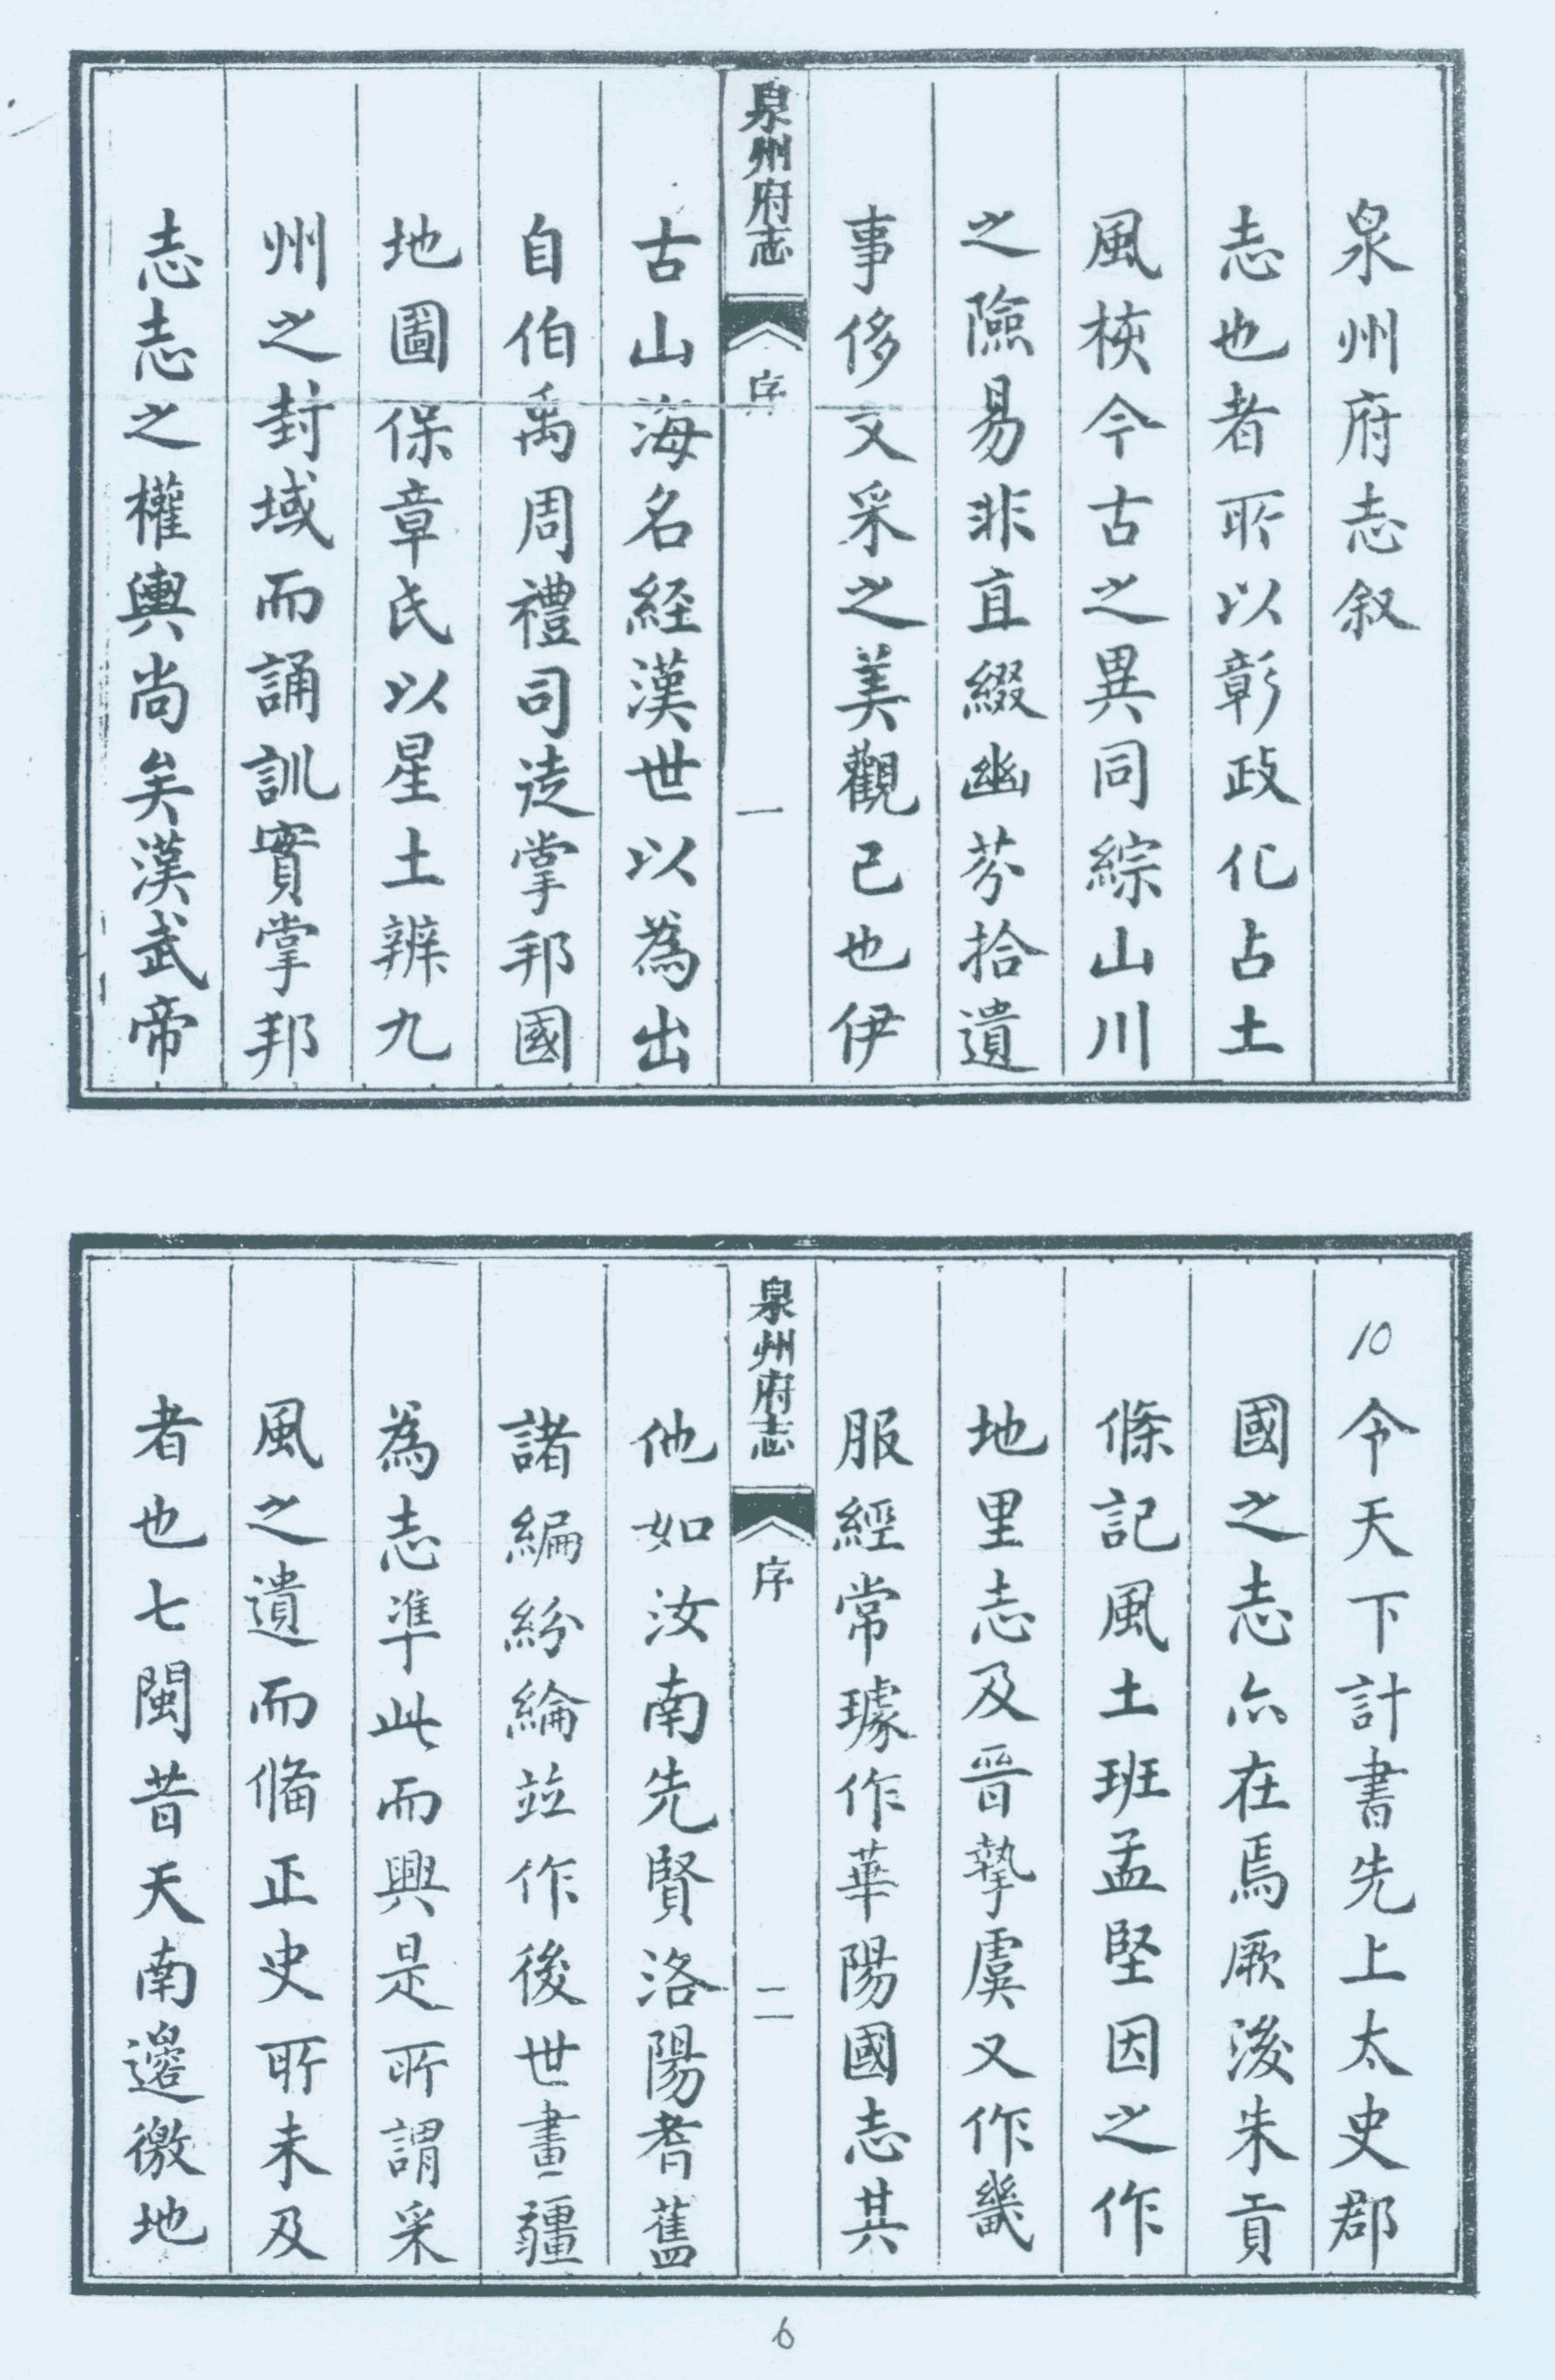 泉州府志叙
志也者所以彰政化占土
風挍今古之異同綜山川
之險易非直綴幽芬拾遺
事侈文采之美觀已也伊
泉州府志 序 一
古山海名経漢世以為出
自伯禹周禮司徒掌邦國
地圖保章氏以星土辨九
州之封域而誦訓實掌邦
志志之權輿尚矣漢武帝
10
令天下計書先上太史郡
國之志亦在焉厥後朱貢
條記風土班孟堅因之作
地里志及晉摯虞又作畿
服經常璩作華陽國志其
泉州府志 序 二
他如汝南先賢洛陽耆舊
諸編紛綸並作後世畫疆
為志準此而興是所謂采
風之遺而偹正史所未及
者也七閩昔天南邊徼地
6